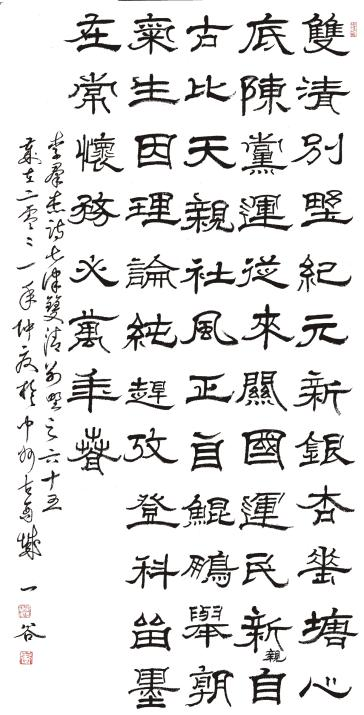 雙清別墅紀元新銀杏垂塘心
底陳黨運從來關國運民新自
親
古比天親社風正自鯤鵬舉朝
氣生因理論純趕攷登科留墨
在常懷務必萬年春
詩七律雙清別墅之六十五
歲在二零二一年仲夏於 一谷